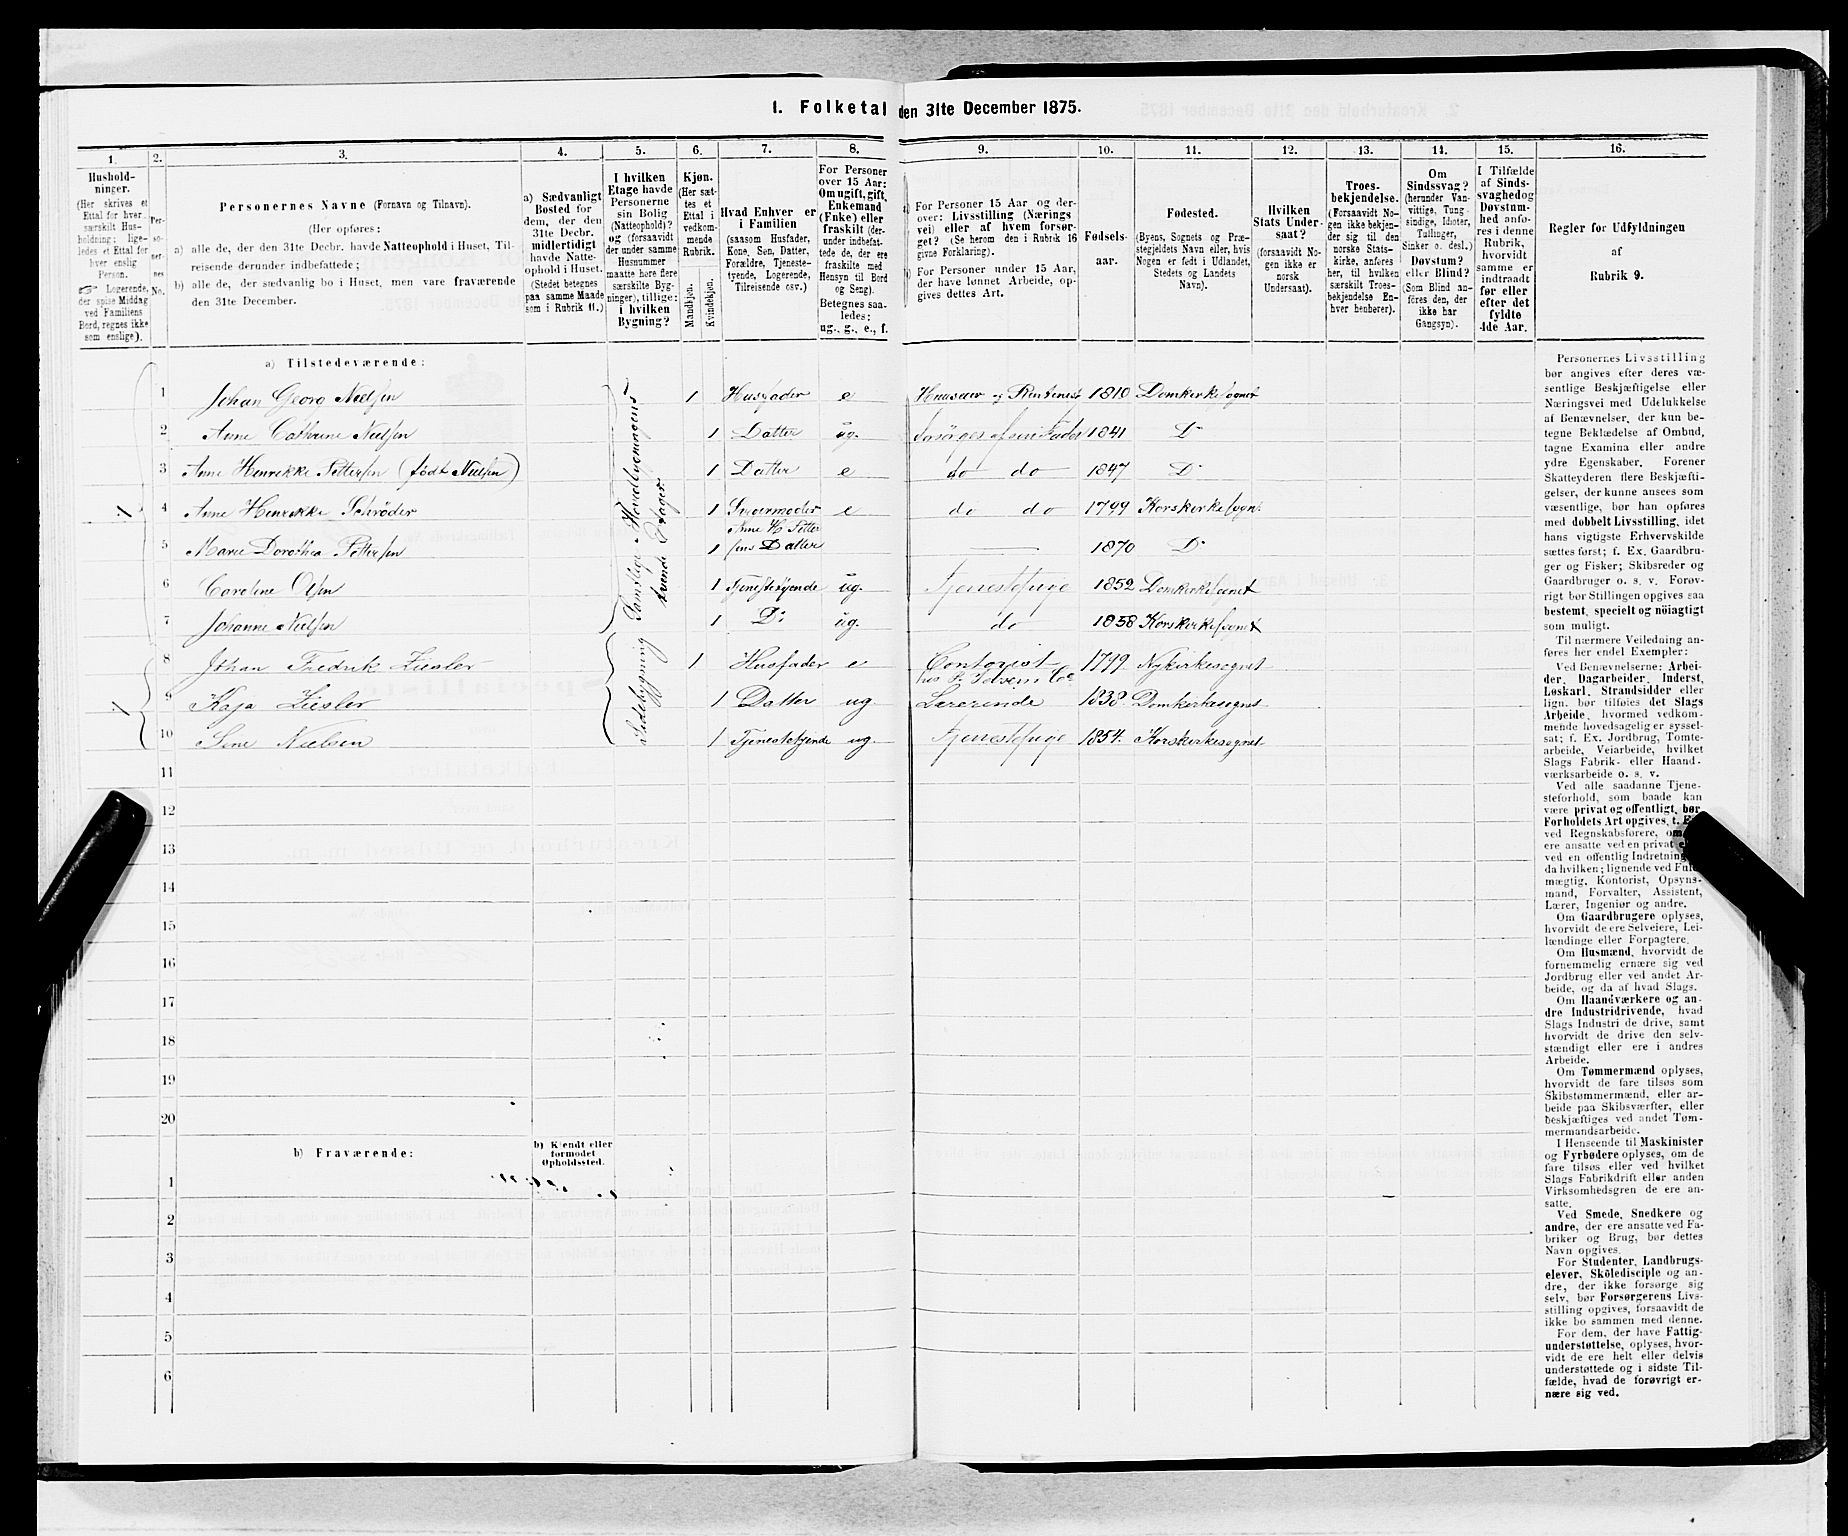 1. Folketal den 31te December 1875.
1. 2. 3. 4. 5. 6. 7. 8. 9. 10. 11. 12. 13. 14. 15. 16.
Hushold-
ninger.
(Her skrives et
Ettal for hver
særskilt Hus-
holdning; lige-
ledes et Ettal for
hver enslig
Person.
☞ Logerende,
der spise Middag
ved Familiens
Bord, regnes ikke
som enslige).
Per-
so-
ner-
nes
No.
Personernes Navne (Fornavn og Tilnavn).
(Her opføres:
a) alle de, der den 31te Decbr. havde Natteophold i Huset, Til-
reisende derunder indbefattede;
b) alle de, der sædvanlig bo i Huset, men vare fraværende
den 31te December.
a) Sædvanligt
Bosted for
dem, der den
31te Decbr.
midlertidigt
havde Natte-
ophold i Huset.
(Stedet betegnes
paa samme Maade
som i Rubrik 11.)
I hvilken
Etage havde
Personerne
sin Bolig
(Natteophold)?
og (forsaavidt
der under samme
Husnummer
maatte høre flere
særskilte Byg-
ninger), tillige:
i hvilken
Bygning?
Kjøn.
(Her sæt-
tes et
Ettal i
vedkom-
mende
Rubrik.
Mandkjøn.
Kvindekjøn.
Hvad Enhver er
i Familien
(saasom Husfader,
Kone, Søn, Datter,
Forældre, Tjeneste-
tyende, Logerende,
Tilreisende osv.)
For Personer
over 15 Aar:
Om ugift, gift,
Enkemand
(Enke) eller
fraskilt (der-
under indbefat-
tede de, der ere
fraskilte med
Hensyn til Bord
og Seng).
Betegnes saa-
ledes:
ug., g., e., f.
a) For Personer 15 Aar og der-
over: Livsstilling (Nærings
vei) eller af hvem forsør-
get? (Se herom den i Rubrik 16
givne Forklaring).
b) For Personer under 15 Aar,
der have lønnet Arbeide, op-
gives dettes Art.
Fødsels-
aar.
Fødested.
(Byens, Sognets og Præ-
stegjeldets Navn eller, hvis
Nogen er født i Udlandet,
Stedets og Landets
Navn).
Hvilken
Stats Under-
saat?
(forsaavidt No-
gen ikke er
norsk
Undersaat).
Troes-
bekjendelse.
(Forsaavidt No-
gen ikke bekjen-
der sig til den
norske Stats-
kirke, anføres
her, til hvilken
særskilt Troes-
bekjendelse En-
hver henhører).
Om
Sindssvag?
(herunder Van-
vittige, Tung-
sindige, Idioter,
Tullinger,
Sinker o. desl.)
Døvstum?
eller Blind?
(Som Blind an-
føres den, der
ikke har
Gangsyn).
I Tilfælde
af Sinds-
svaghed og
Døvstum-
hed anfø-
res i denne
Rubrik,
hvorvidt
samme er
indtraadt
før eller
efter det
fyldte
4de Aar.
Regler for Udfyldningen
af
Rubrik 9.
a) Tilstedeværende:
1 Johan Georg Nielsen 1 Husfader e Huuseier og Rentenist 1810 Domkirkesognet
2 Anne Cathrine Nielsen 1 Datter ug. forsørges af sin Fader 1841 Do
3 Anne Henrikke Pettersen (født Nielsen) 1 Datter e do do 1847 Do
4 Anne Henrikke Schrøder 1 Svigermoder e do do 1799 Korskirkesogn.
5 Marie Dorothea Pettersen 1 Anne H. Petter
sens Datter — 1870 Do
6 Caroline Olsen 1 Tjenestetyende ug. Tjenestepige 1852 Domkirkesognet
7 Johanne Nielsen 1 Do ug. do 1858 Korskirkesognet
Samtlige i Hovedbygningens
tvende Etager.
8 Johan Fredrik Ziesler 1 Husfader e Contorist
1799 Nykirkesognet
9 Kaja Ziesler 1 Datter ug Lærerinde 1838 Domkirkesognet
10 Sine Nielsen 1 Tjenestetyende ug. Tjenestepige 1854. Korskirkesognet
Sidebygning
11
12
13
14
15
16
17
18
19
20
b) Fraværende:
b) Kjendt eller
formodet
Opholdssted.
1
2
3
4
5
6
Personernes Livsstilling
bør angives efter deres væ-
sentlige Beskjæftigelse eller
Næringsvei med Udelukkelse
af Benævnelser, der kun be-
tegne Beklædelse af Ombud,
tagne Examina eller andre
ydre Egenskaber. Forener
Skatteyderen flere Beskjæfti-
gelser, der kunne ansees som
væsentlige, bør han opføres
med dobbelt Livsstilling, idet
hans vigtigste Erhvervskilde
sættes først; f. Ex. Gaardbru-
ger og Fisker; Skibsreder og
Gaardbruger o. s. v. Forøv-
rigt bør Stillingen opgives saa
bestemt, specielt og nöiagtigt
som muligt.
Til nærmere Veiledning an-
føres her endel Exempler:
Ved Benævnelserne: Arbei-
der, Dagarbeider, Inderst,
Løskarl, Strandsidder eller
lign. bør tilføies det Slags
Arbeide, hvormed vedkom-
mende hovedsagelig er syssel-
sat; f. Ex. Jordbrug, Tomte-
arbeide, Veiarbeide, hvilket
Slags Fabrik- eller Haand-
værksarbeide o. s. v.
Ved alle saadanne Tjene-
steforhold, som baade kan
være privat og offentligt, bør
Forholdets Art opgives, t. E
ved Regnskabsførere, om
ere ansatte ved en privat e
ved en offentlig Indretning
da hvilken; lignende ved Ful
mægtig, Kontorist, Opsyns-
mand, Forvalter, Assistent,
Lærer, Ingeniør og andre.
Om Gaardbrugere oplyses,
hvorvidt de ere Selveiere, Lei-
lændinge eller Forpagtere.
Om Husmænd, hvorvidt de
fornemmelig ernære sig ved
Jordbrug eller ved andet Ar-
beide, og da af hvad Slags.
Om Haandværkere og an-
dre Industridrivende, hvad
Slags Industri de drive, samt
hvorvidt de drive den selv-
stændigt eller ere i andres
Arbeide.
Om Tømmermænd oplyses,
hvorvidt de fare tilsøs som
Skibstømmermænd, eller ar-
beide paa Skibsværfter, eller
beskjæftiges ved andet Tøm-
mermandsarbeide.
I Henseende til Maskinister
og Fyrbødere oplyses, om de
fare tilsøs eller ved hvilket
Slags Fabrikdrift eller anden
Virksomhedsgren de ere an-
satte.
Ved Smede, Snedkere og
andre, der ere ansatte ved Fa-
briker og Brug, bør dettes
Navn opgives.
For Studenter, Landbrugs-
elever, Skôledisciple og an-
dre, der ikke forsørge sig
selv, bør Forsørgerens Livs-
stilling opgives, forsaavidt de
ikke bo sammen med denne.
For dem, der have Fattig-
understøttelse, oplyses, hvor-
vidt de ere helt eller delvis
understøttede og i sidste Til-
fælde, hvad de forøvrigt er-
nære sig ved.